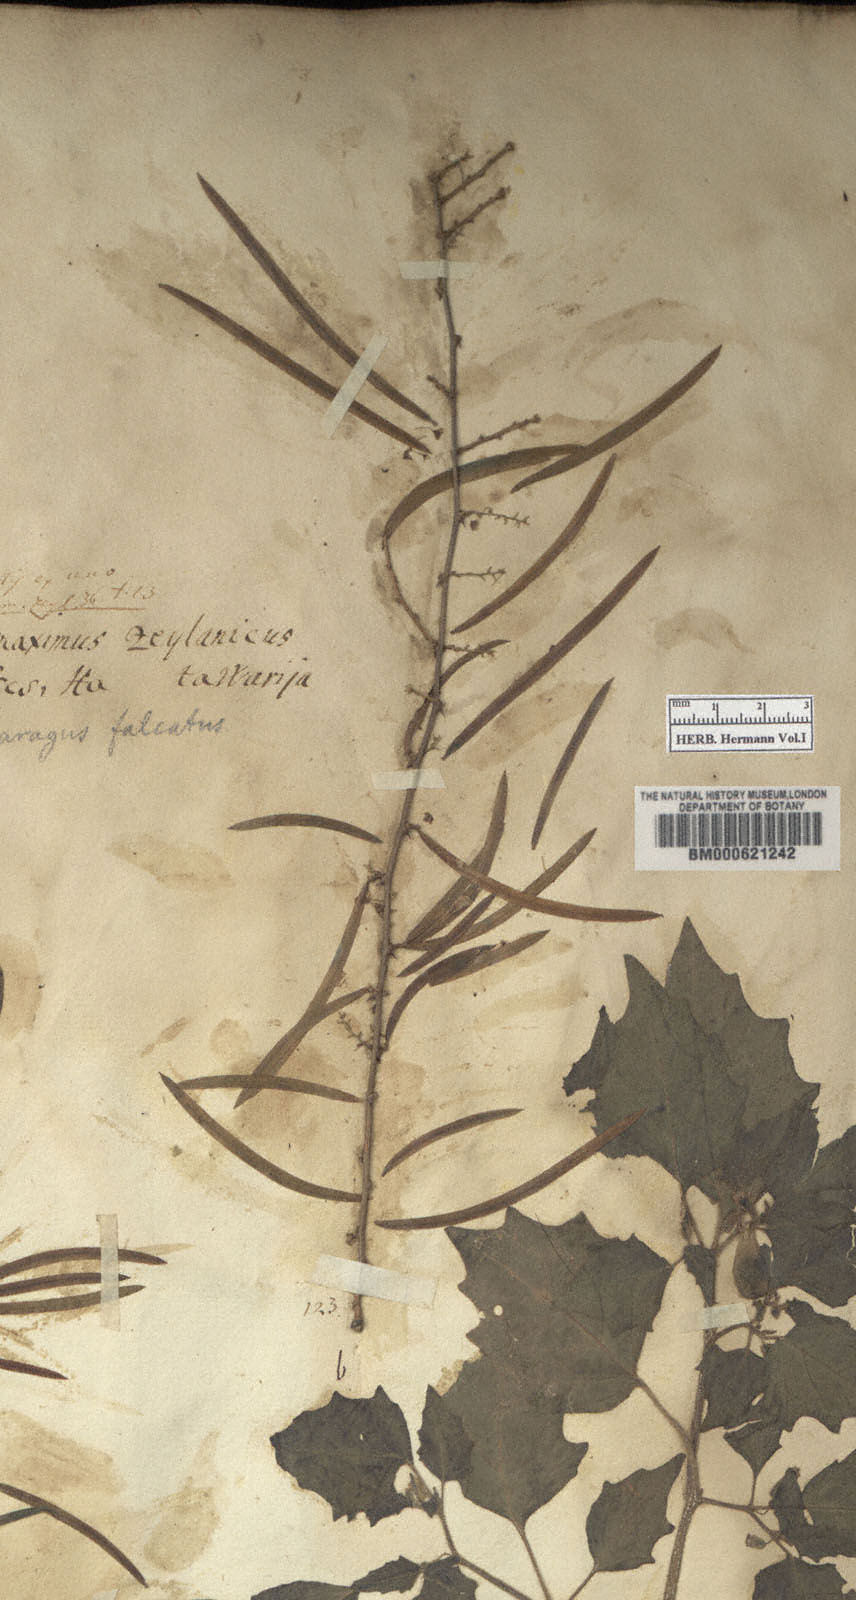 uno
t. 13
maximus Zeylanicus
Ha tawarija
aragus falcatus
mm 1 2 3
HERB. Hermann Vol.I
THE NATURAL HISTORY MUSEUM, LONDON
DEPARTMENT OF BOTANY
BM000621242
123
b